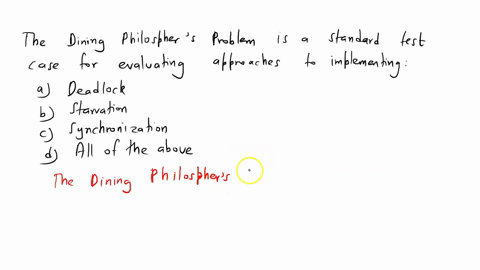 The Dining Philospher's Problem is a standard test
case for evaluating approaches to implementing:
a) Deadlock
b) Starvation
c) Synchronization
d) All of the above
The Dining Philospher's